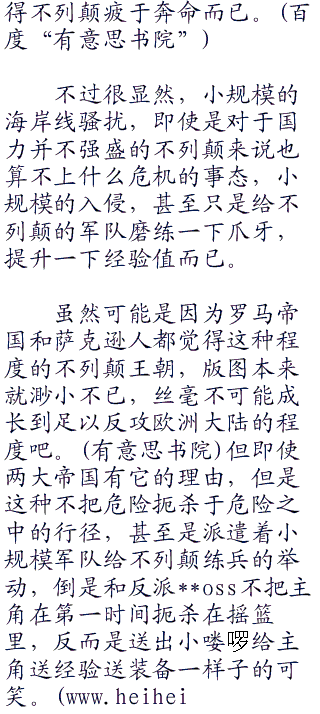 得不列颠疲于奔命而已。(百
度“有意思书院”)
不过很显然，小规模的
海岸线骚扰，即使是对于国
力并不强盛的不列颠来说也
算不上什么危机的事态，小
规模的入侵，甚至只是给不
列颠的军队磨练一下爪牙，
提升一下经验值而已。
虽然可能是因为罗马帝
国和萨克逊人都觉得这种程
度的不列颠王朝，版图本来
就渺小不已，丝毫不可能成
长到足以反攻欧洲大陆的程
度吧。(有意思书院)但即使
两大帝国有它的理由，但是
这种不把危险扼杀于危险之
中的行径，甚至是派遣着小
规模军队给不列颠练兵的举
动，倒是和反派**oss不把主
角在第一时间扼杀在摇篮
里，反而是送出小喽啰给主
角送经验送装备一样子的可
笑。(www.heihei